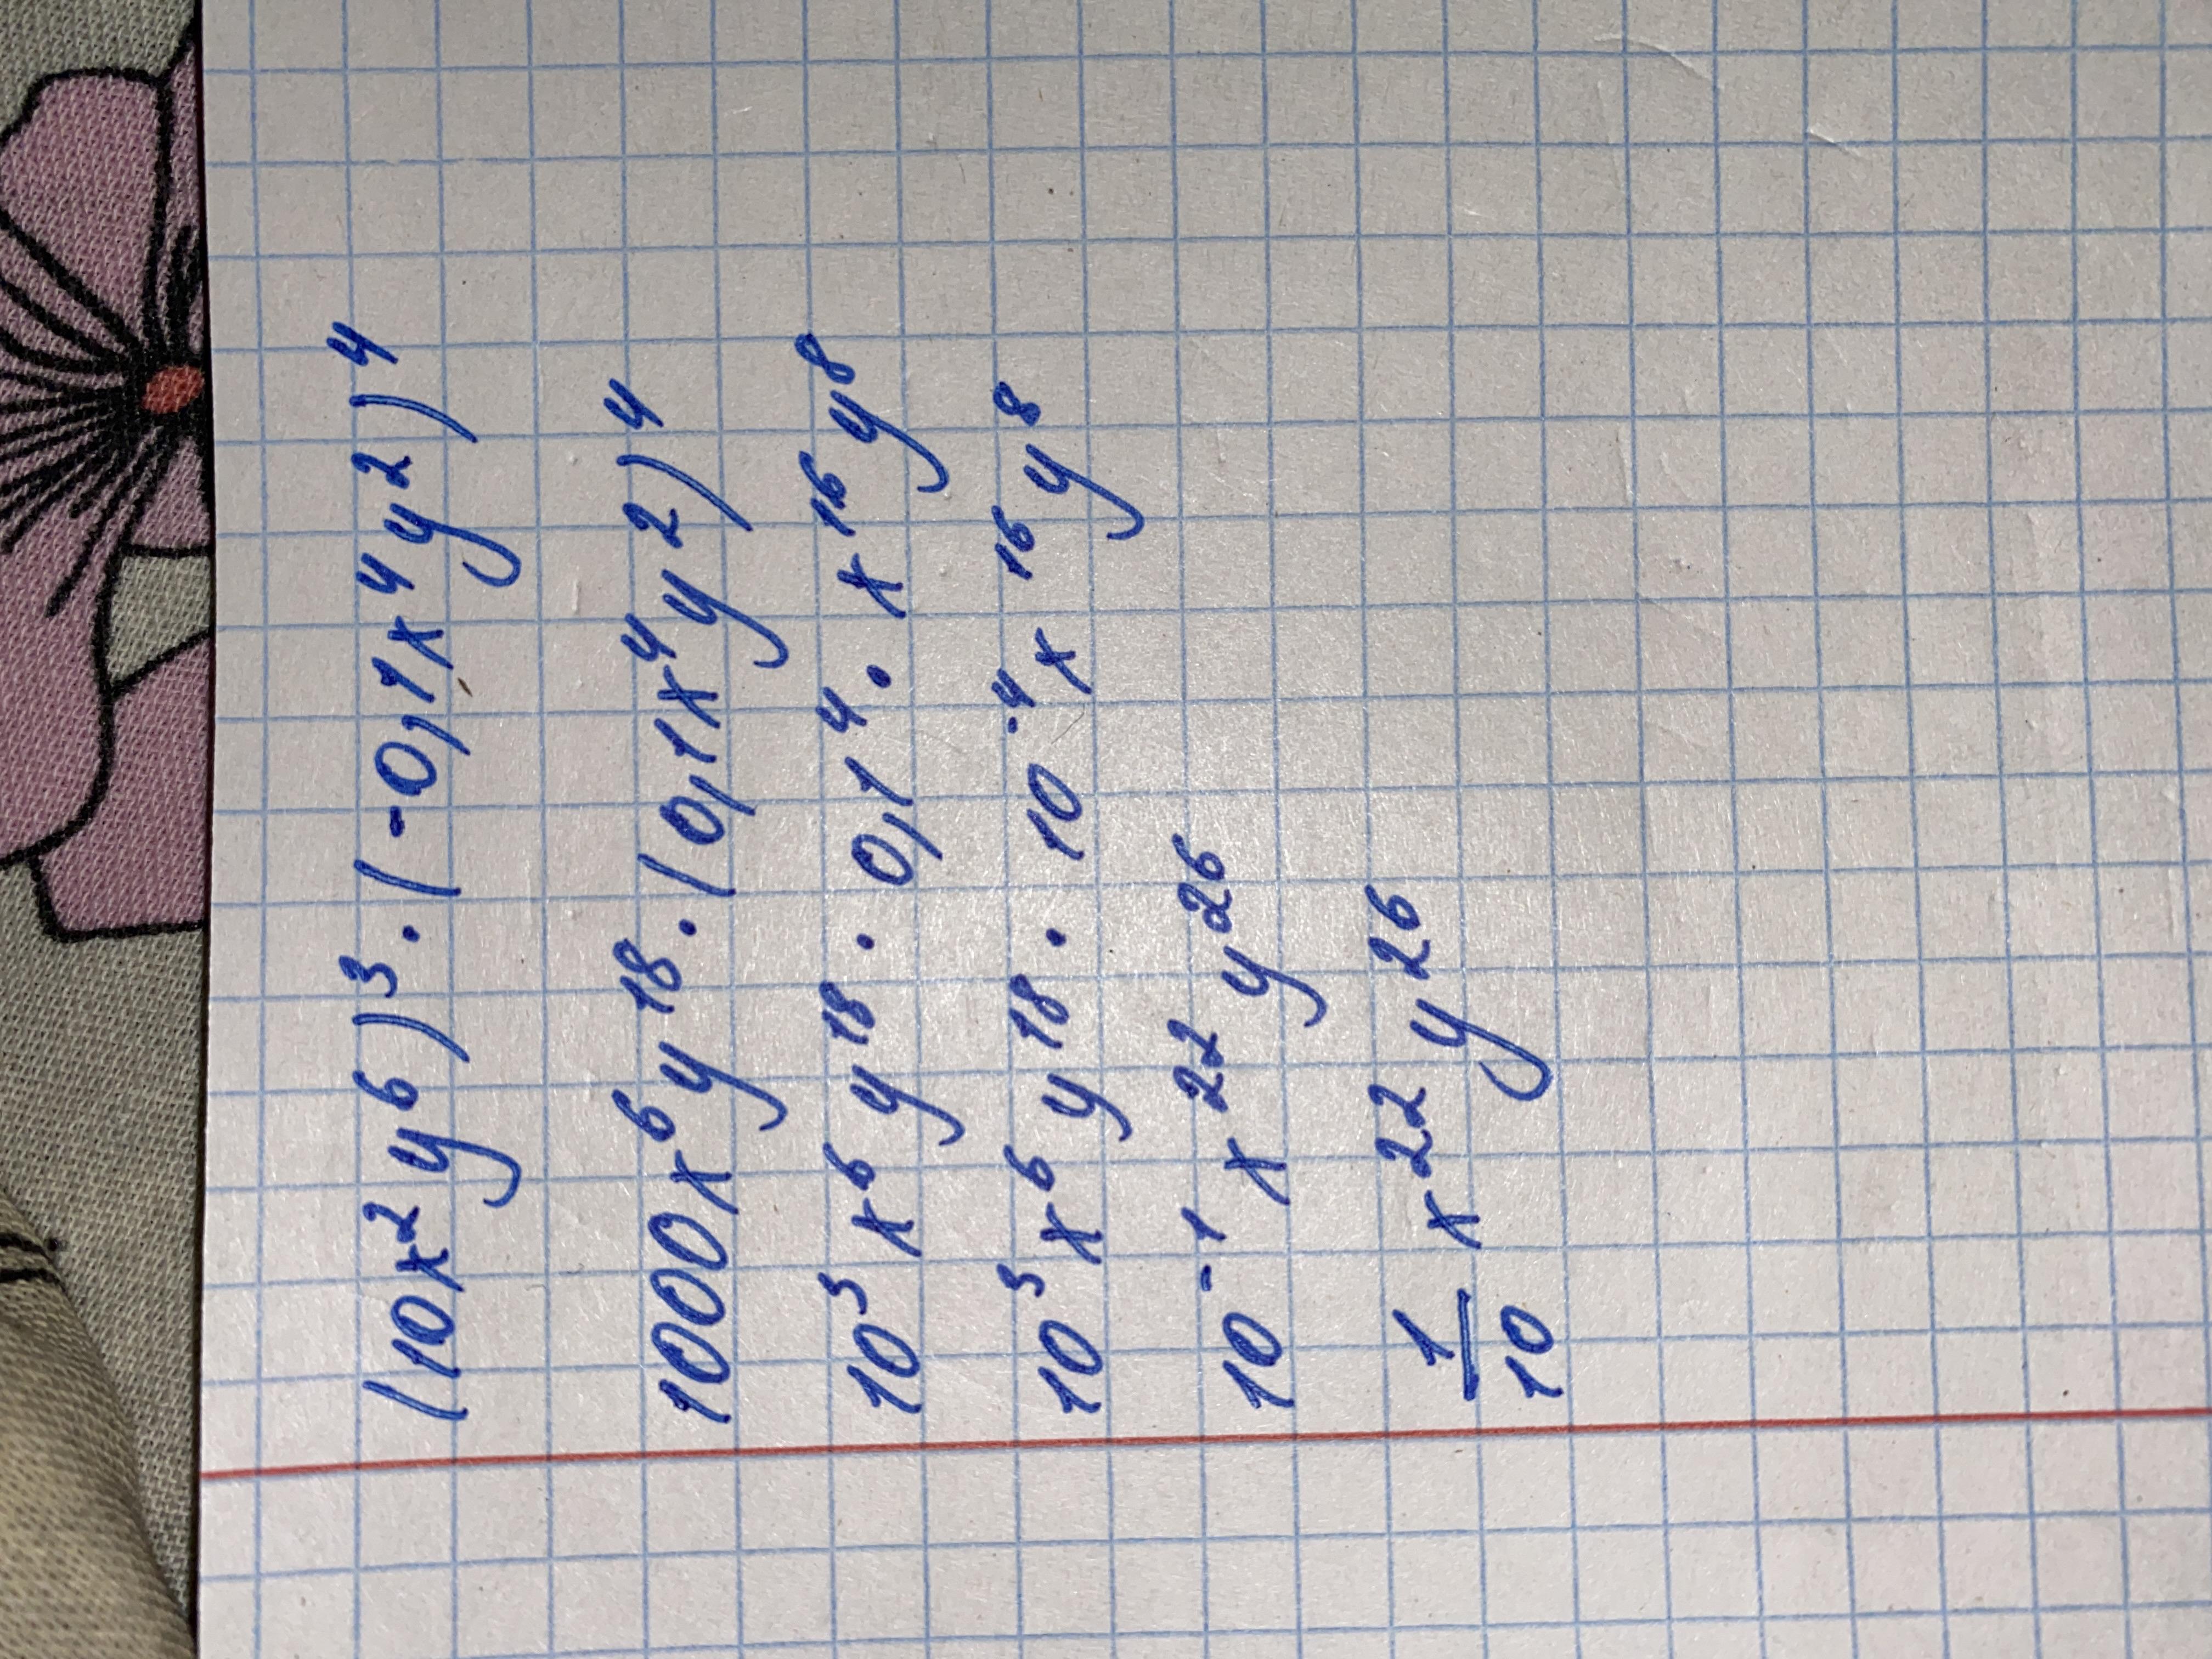 (10x²y⁶)³·(-0,1x⁴y²)⁴
1000x⁶y¹⁸·(0,1x⁴y²)⁴
10³x⁶y¹⁸·0,1⁴·x¹⁶y⁸
10³x⁶y¹⁸·10⁻⁴x¹⁶y⁸
10⁻¹x²²y²⁶
1/10 x²²y²⁶